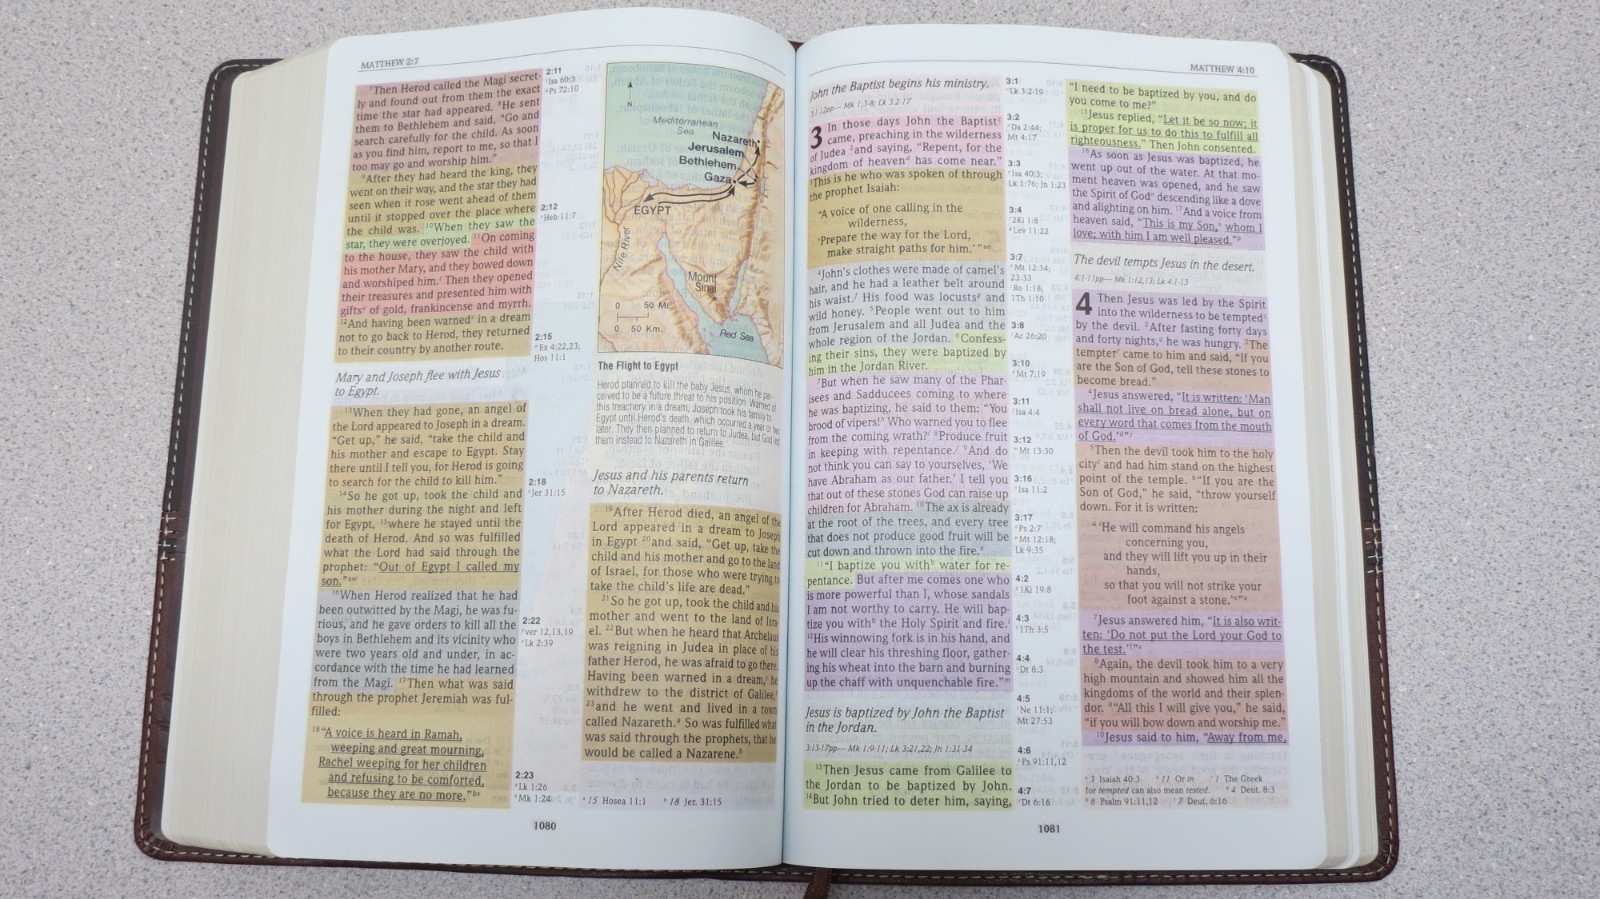 MATTHEW 2:7
7Then Herod called the Magi secret-
ly and found out from them the exact
time the star had appeared. 8He sent
them to Bethlehem and said, “Go and
search carefully for the child. As soon
as you find him, report to me, so that I
too may go and worship him.”
9After they had heard the king, they
went on their way, and the star they had
seen when it rose went ahead of them
until it stopped over the place where
the child was. 10When they saw the
star, they were overjoyed. 11On coming
to the house, they saw the child with
his mother Mary, and they bowed down
and worshiped him. Then they opened
their treasures and presented him with
gifts of gold, frankincense and myrrh.
12And having been warned in a dream
not to go back to Herod, they returned
to their country by another route.
Mary and Joseph flee with Jesus
to Egypt.
13When they had gone, an angel of
the Lord appeared to Joseph in a dream.
“Get up,” he said, “take the child and
his mother and escape to Egypt. Stay
there until I tell you, for Herod is going
to search for the child to kill him.”
14So he got up, took the child and
his mother during the night and left
for Egypt, 15where he stayed until the
death of Herod. And so was fulfilled
what the Lord had said through the
prophet: “Out of Egypt I called my
son.”
16When Herod realized that he had
been outwitted by the Magi, he was fu-
rious, and he gave orders to kill all the
boys in Bethlehem and its vicinity who
were two years old and under, in ac-
cordance with the time he had learned
from the Magi. 17Then what was said
through the prophet Jeremiah was ful-
filled:
18“A voice is heard in Ramah,
weeping and great mourning,
Rachel weeping for her children
and refusing to be comforted,
because they are no more.”
2:11
Isa 60:3
Ps 72:10
2:12
Heb 11:7
2:15
Ex 4:22,23;
Hos 11:1
2:18
Jer 31:15
2:22
ver 12,13,19
Lk 2:39
2:23
Lk 1:26
Mk 1:24
N
Mediterranean
Sea
Nazareth
Jerusalem
Bethlehem
Gaza
EGYPT
Nile River
Mount
Sinai
0 50 Mi.
0 50 Km.
Red Sea
The Flight to Egypt
Herod planned to kill the baby Jesus, whom he per-
ceived to be a future threat to his position. Warned of
this treachery in a dream, Joseph took his family to
Egypt until Herod's death, which occurred a year or two
later. They then planned to return to Judea, but God led
them instead to Nazareth in Galilee.
Jesus and his parents return
to Nazareth.
19After Herod died, an angel of the
Lord appeared in a dream to Joseph
in Egypt 20and said, “Get up, take the
child and his mother and go to the land
of Israel, for those who were trying to
take the child's life are dead.”
21So he got up, took the child and his
mother and went to the land of Isra-
el. 22But when he heard that Archelaus
was reigning in Judea in place of his
father Herod, he was afraid to go there.
Having been warned in a dream, he
withdrew to the district of Galilee,
23and he went and lived in a town
called Nazareth. So was fulfilled what
was said through the prophets, that he
would be called a Nazarene.
15 Hosea 11:1 18 Jer. 31:15
1080
MATTHEW 4:10
John the Baptist begins his ministry.
3:1-12pp— Mk 1:3-8; Lk 3:2-17
3 In those days John the Baptist
came, preaching in the wilderness
of Judea 2and saying, “Repent, for the
kingdom of heaven has come near.”
3This is he who was spoken of through
the prophet Isaiah:
“A voice of one calling in the
wilderness,
‘Prepare the way for the Lord,
make straight paths for him.’”
4John's clothes were made of camel's
hair, and he had a leather belt around
his waist. His food was locusts and
wild honey. 5People went out to him
from Jerusalem and all Judea and the
whole region of the Jordan. 6Confess-
ing their sins, they were baptized by
him in the Jordan River.
7But when he saw many of the Phar-
isees and Sadducees coming to where
he was baptizing, he said to them: “You
brood of vipers! Who warned you to flee
from the coming wrath? 8Produce fruit
in keeping with repentance. 9And do
not think you can say to yourselves, ‘We
have Abraham as our father.’ I tell you
that out of these stones God can raise up
children for Abraham. 10The ax is already
at the root of the trees, and every tree
that does not produce good fruit will be
cut down and thrown into the fire.
11“I baptize you with water for re-
pentance. But after me comes one who
is more powerful than I, whose sandals
I am not worthy to carry. He will bap-
tize you with the Holy Spirit and fire.
12His winnowing fork is in his hand, and
he will clear his threshing floor, gather-
ing his wheat into the barn and burning
up the chaff with unquenchable fire.”
Jesus is baptized by John the Baptist
in the Jordan.
3:13-17pp— Mk 1:9-11; Lk 3:21,22; Jn 1:31-34
13Then Jesus came from Galilee to
the Jordan to be baptized by John.
14But John tried to deter him, saying,
3:1
Lk 3:2-19
3:2
Da 2:44;
Mt 4:17
3:3
Isa 40:3;
Lk 1:76; Jn 1:23
3:4
2Ki 1:8
Lev 11:22
3:7
Mt 12:34;
23:33
Ro 1:18;
1Th 1:10
3:8
Ac 26:20
3:10
Mt 7:19
3:11
Isa 4:4
3:12
Mt 13:30
3:16
Isa 11:2
3:17
Ps 2:7
Mt 12:18;
Lk 9:35
4:2
1Ki 19:8
4:3
1Th 3:5
4:4
Dt 8:3
4:5
Ne 11:1;
Mt 27:53
4:6
Ps 91:11,12
4:7
Dt 6:16
“I need to be baptized by you, and do
you come to me?”
15Jesus replied, “Let it be so now; it
is proper for us to do this to fulfill all
righteousness.” Then John consented.
16As soon as Jesus was baptized, he
went up out of the water. At that mo-
ment heaven was opened, and he saw
the Spirit of God descending like a dove
and alighting on him. 17And a voice from
heaven said, “This is my Son, whom I
love; with him I am well pleased.”
The devil tempts Jesus in the desert.
4:1-11pp— Mk 1:12,13; Lk 4:1-13
4 Then Jesus was led by the Spirit
into the wilderness to be tempted
by the devil. 2After fasting forty days
and forty nights, he was hungry. 3The
tempter came to him and said, “If you
are the Son of God, tell these stones to
become bread.”
4Jesus answered, “It is written: ‘Man
shall not live on bread alone, but on
every word that comes from the mouth
of God.’”
5Then the devil took him to the holy
city and had him stand on the highest
point of the temple. 6“If you are the
Son of God,” he said, “throw yourself
down. For it is written:
“‘He will command his angels
concerning you,
and they will lift you up in their
hands,
so that you will not strike your
foot against a stone.’”
7Jesus answered him, “It is also writ-
ten: ‘Do not put the Lord your God to
the test.’”
8Again, the devil took him to a very
high mountain and showed him all the
kingdoms of the world and their splen-
dor. 9“All this I will give you,” he said,
“if you will bow down and worship me.”
10Jesus said to him, “Away from me,
3 Isaiah 40:3 11 Or in 1 The Greek
for tempted can also mean tested. 4 Deut. 8:3
6 Psalm 91:11,12 7 Deut. 6:16
1081